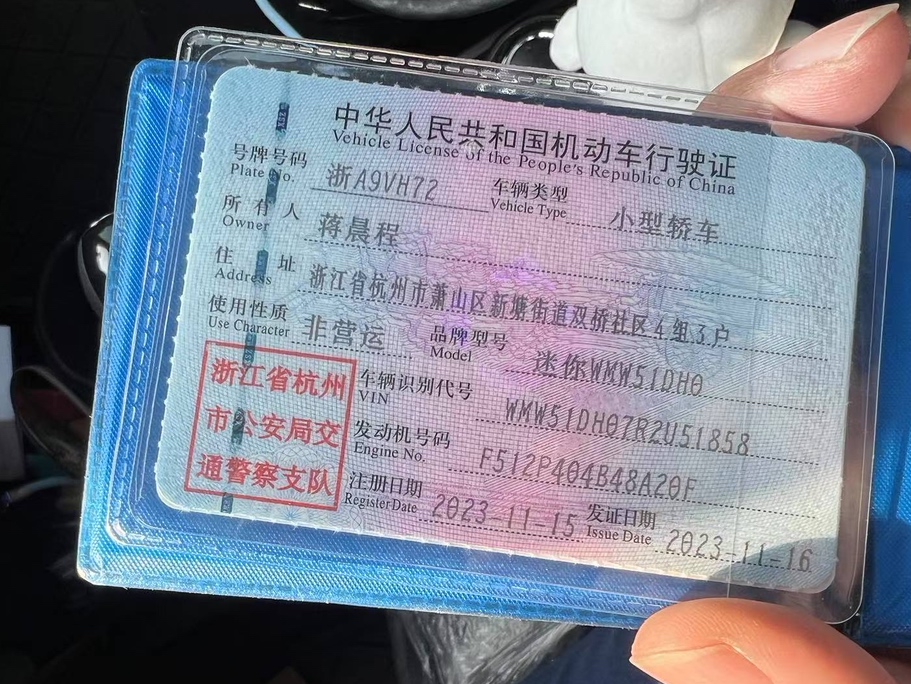 中华人民共和国机动车行驶证
Vehicle License of the People's Republic of China
号牌号码 浙A9VH72 车辆类型 小型轿车
Plate No. Vehicle Type
所有人 蒋晨程
Owner
住址 浙江省杭州市萧山区新塘街道双桥社区4组3户
Address
使用性质 非营运 品牌型号 迷你WMW51DH0
Use Character Model
浙江省杭州
市公安局交
通警察支队
车辆识别代号 WMW51DH07R2U51858
VIN
发动机号码 F512P404B48A20F
Engine No.
注册日期 2023-11-15 发证日期 2023-11-16
Register Date Issue Date